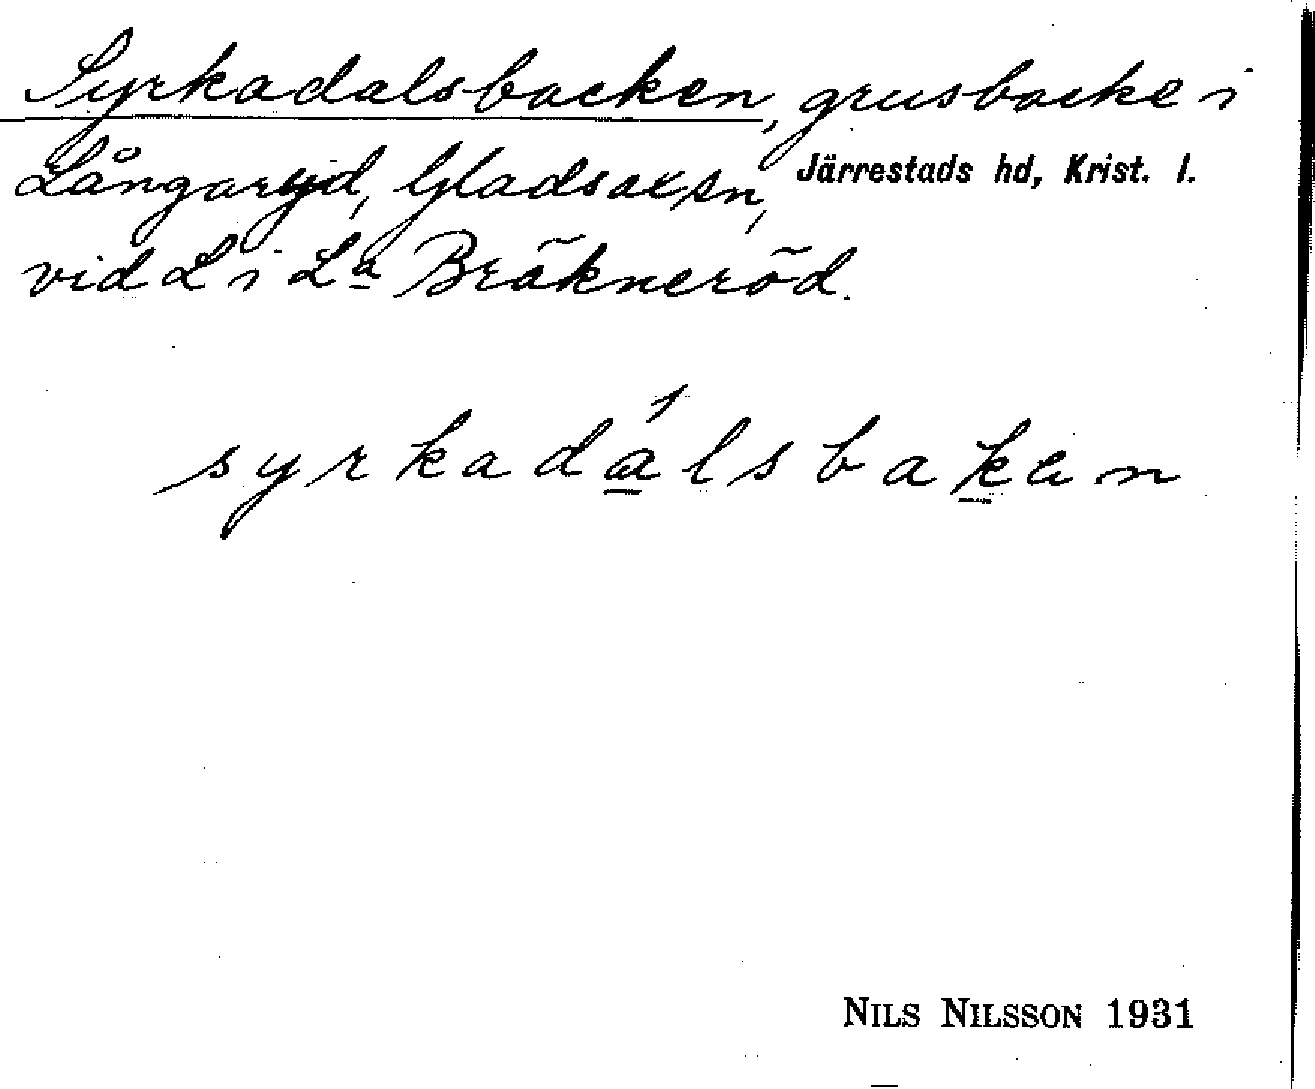 Syrkadalsbacken, grusbacke i
Långaryd, Gladsax sn, Järrestads hd, Krist. l.
vid L i La Bräkneröd.
syrkadálsbaken
NILS NILSSON 1931